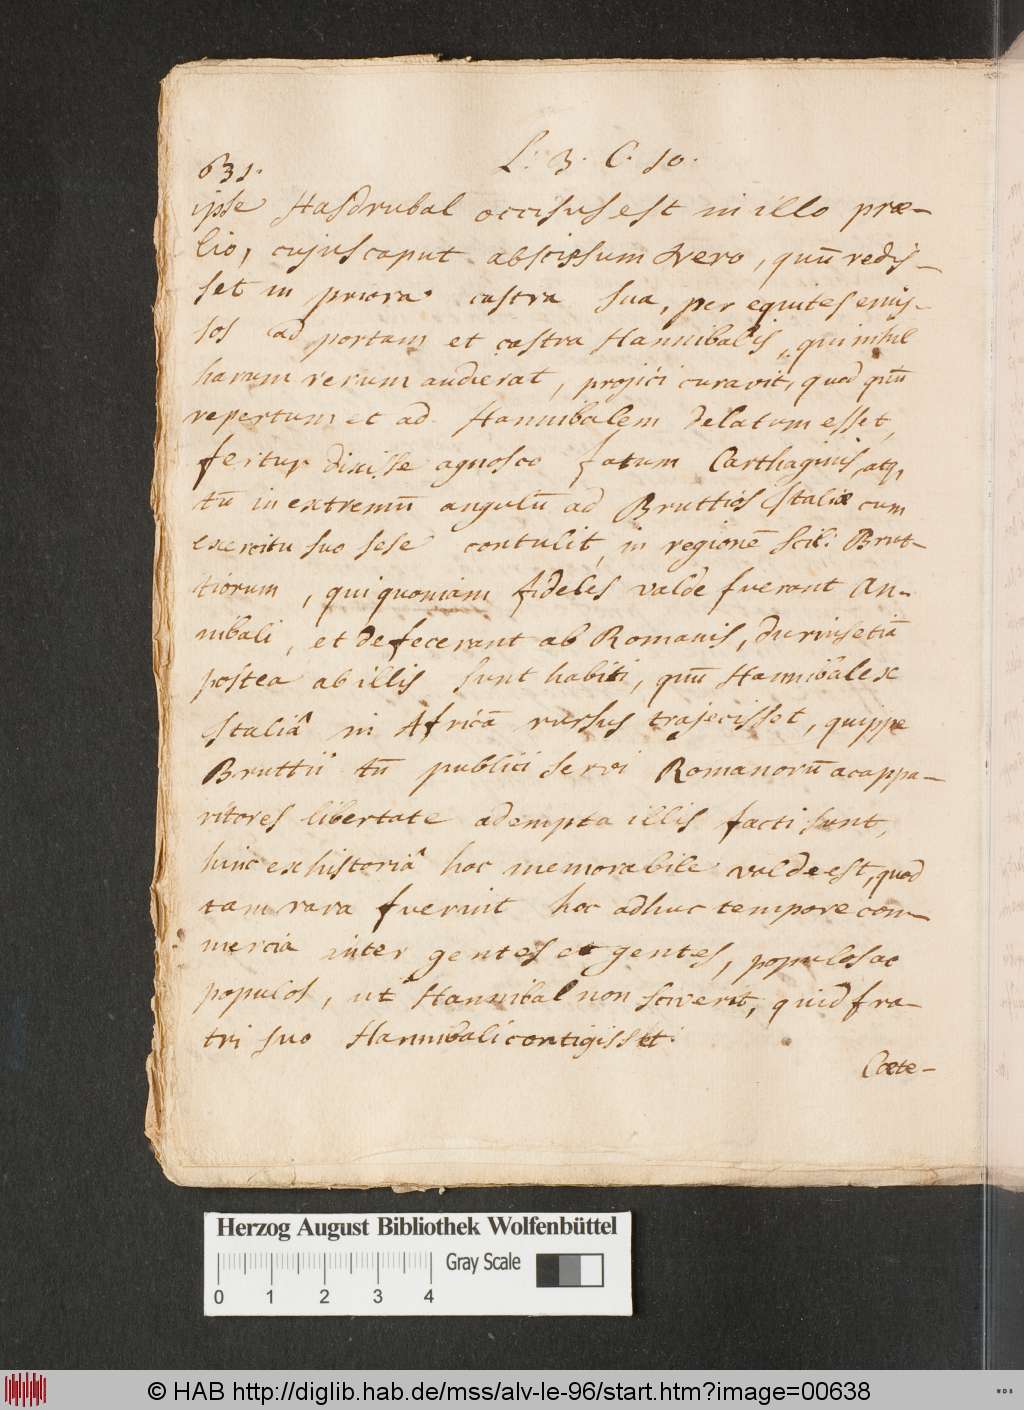 631.
L. 3. C. 10.
ipse Hasdrubal occisus est in illo præ-
lio, cujus caput abscissum Nero, quū redis-
set in priora castra sua, per equites emis-
sos ad portam et castra Hannibalis, qui nihil
harum rerum audierat, projici curavit, quod quū
repertum et ad Hannibalem delatum esset,
fertur dixisse agnosco fatum Carthaginis, atq,
tū in extremū angulū ad Bruttios Italiæ cum
exercitu suo sese contulit, in regionē scil: Brut-
tiorum, qui quoniam fideles valde fuerant An-
nibali, et defecerant ab Romanis, durius etiā
postea ab illis sunt habiti, quū Hannibal ex
Italiâ in Africā rursus trajecisset, quippe
Bruttii tū publici servi Romanorū ac appa-
ritores libertate adempta illis facti sunt,
hinc ex historiâ hoc memorabile valde est, quod
tam rara fuerint hoc adhuc tempore com-
mercia inter gentes et gentes, populos ac
populos, ut Hannibal non sciverit, quid fra-
tri suo Hannibali contigisset.
Cæte-
Herzog August Bibliothek Wolfenbüttel
Gray Scale
0 1 2 3 4
© HAB http://diglib.hab.de/mss/alv-le-96/start.htm?image=00638